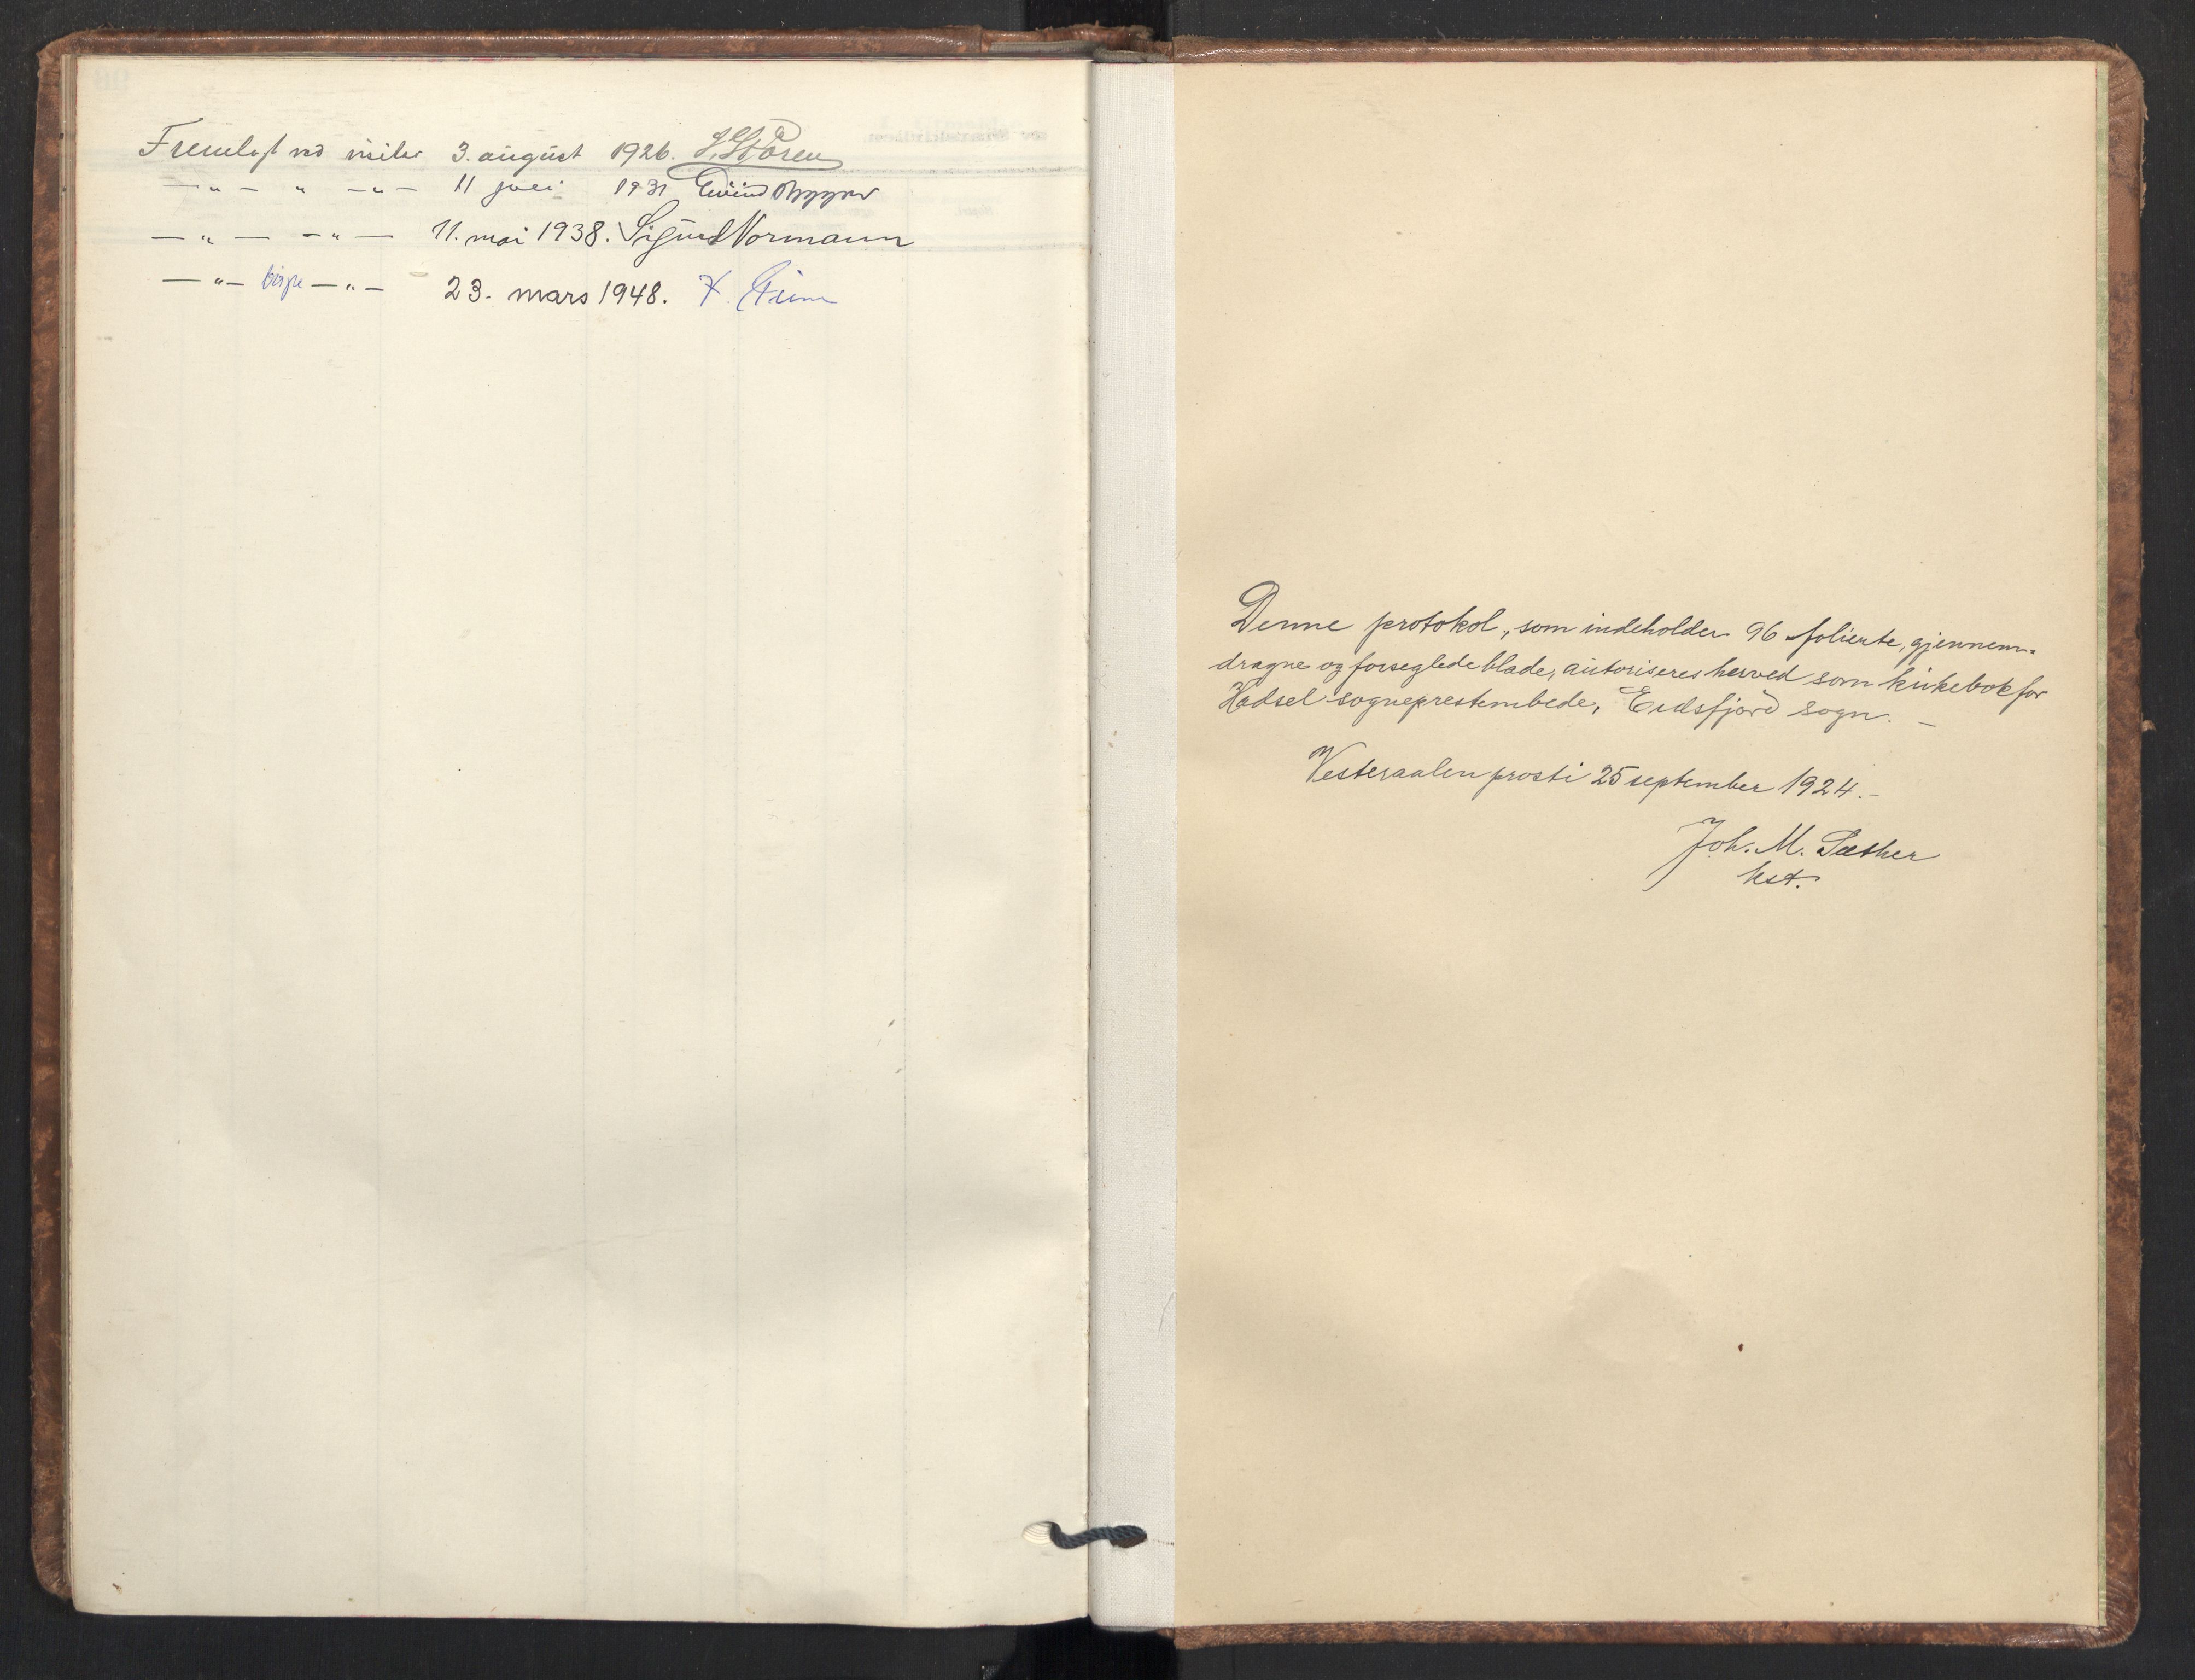 Fremlagt ved visitas 3. august 1926. J. Støren
— „ — „ — „ — 11 juli 1931 Eivind Berggrav
— „ — — „ — 11. mai 1938. Sigurd Normann
— „ — bispe — „ — 23. mars 1948.
Denne protokol, som indeholder 96 folierte, gjennem-
dragne og forseglede blade, autoriseres herved som kirkebok for
Hadsel sogneprestembede, Eidsfjord sogn. —
Vesteraalen prosti 25 september 1924. —
Joh. M. Sæther
kst.